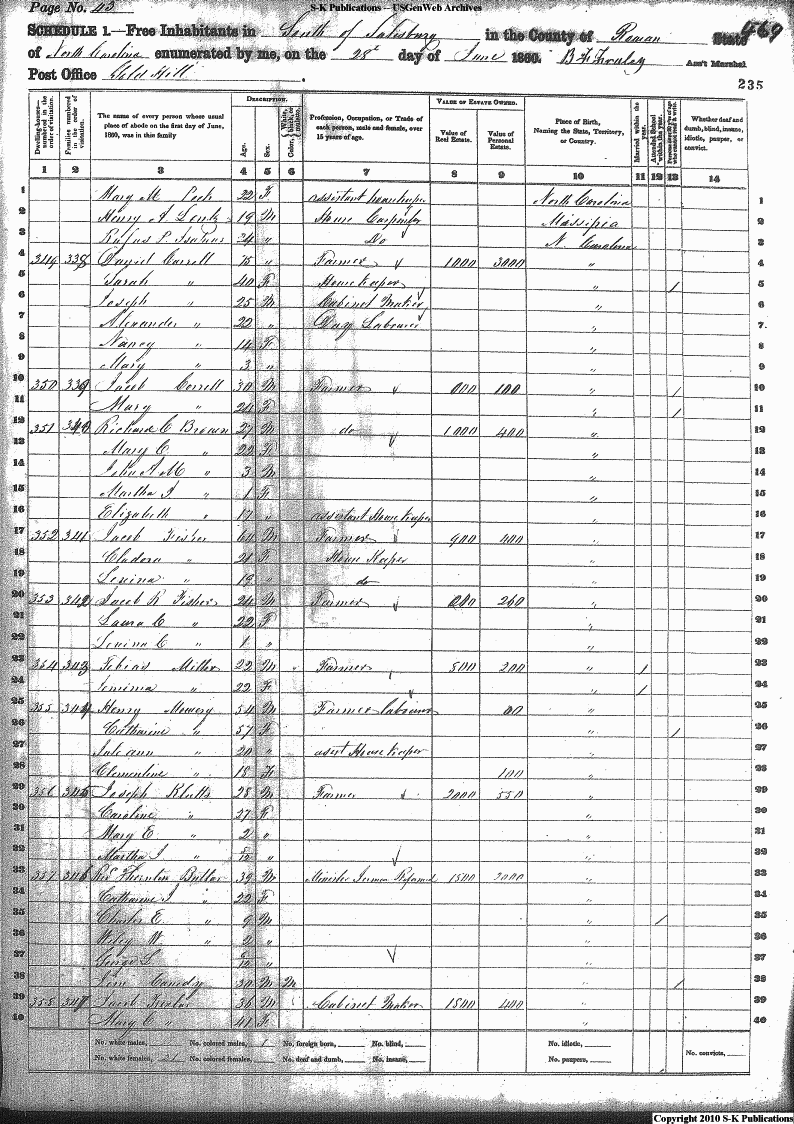 Page No. 43
S-K Publications – USGenWeb Archives
469
SCHEDULE 1.—Free Inhabitants in South of Salisbury in the County of Rowan State
of North Carolina enumerated by me, on the 28th day of June 1860. Ass't Marshal
Post Office Gold Hill
235
Dwelling-houses— numbered in the order of visitation.
Families numbered in the order of visitation.
The name of every person whose usual place of abode on the first day of June, 1860, was in this family
DESCRIPTION.
Age.
Sex.
Color,
Profession, Occupation, or Trade of each person, male and female, over 15 years of age.
VALUE OF ESTATE OWNED.
Value of Real Estate.
Value of Personal Estate.
Place of Birth, Naming the State, Territory, or Country.
Married within the year.
Attended School within the year.
Whether deaf and dumb, blind, insane, idiotic, pauper, or convict.
1 2 3 4 5 6 7 8 9 10 11 12 13 14
1 Mary M 22 F assistant housekeeper North Carolina 1
2 Henry A Lentz 19 M House Carpenter 2
3 Rufus P 24 " Do N. Carolina 3
4 349 338 David Correll 75 " Farmer 1000 3000 " 4
5 Sarah " 40 F House Keeper " / 5
6 Joseph " 25 M Cabinet Maker " 6
7 Alexander " 22 " Day Labourer " 7
8 Nancy " 14 F " 8
9 Mary " 3 " " 9
10 350 339 Jacob Correll 30 M Farmer 100 " / 10
11 Mary " 24 F " / 11
12 351 340 Richard C Brown 27 M do 1000 400 " 12
13 Mary C " 22 F " 13
14 John A M " 3 M " 14
15 Martha J " 1 F " 15
16 Elizabeth " 17 " assistant House Keeper " 16
17 352 341 Jacob Fisher 64 M Farmer 900 400 " 17
18 21 F House Keeper " 18
19 Levina " 19 " do " 19
20 353 342 Jacob R Fisher 24 M Farmer 260 " 20
21 Laura C " 22 F " 21
22 Levina C " 1 " " 22
23 354 343 Tobias Miller 22 M Farmer 500 200 " / 23
24 Jemima " 22 F " / 24
25 355 344 Henry Mowery 54 M Farmer labourer " 25
26 Catharine " 57 F " / 26
27 Juleann " 20 " asist House Keeper " 27
28 Clementine " 18 F 100 " 28
29 356 345 Joseph Klutts 28 M Farmer 2000 550 " 29
30 Caroline " 27 F " 30
31 Mary E " 2 " " 31
32 Martha J " " " 32
33 357 346 Rev Thornton Butler 39 M Minister German Reformed 1500 3000 " 33
34 Catharine J " 22 F " 34
35 Charles E. " 9 M " / 35
36 Wiley W. " 2 " " 36
37 George L " " 37
38 Canady 30 M M " / 38
39 358 347 Jacob 36 M Cabinet Maker 1500 400 " 39
40 Mary C " 41 F " 40
No. white males, No. colored males, 1 No. foreign born, No. blind, No. idiotic,
No. white females, 21 No. colored females, No. deaf and dumb, No. insane, No. paupers, No. convicts,
Copyright 2010 S-K Publications